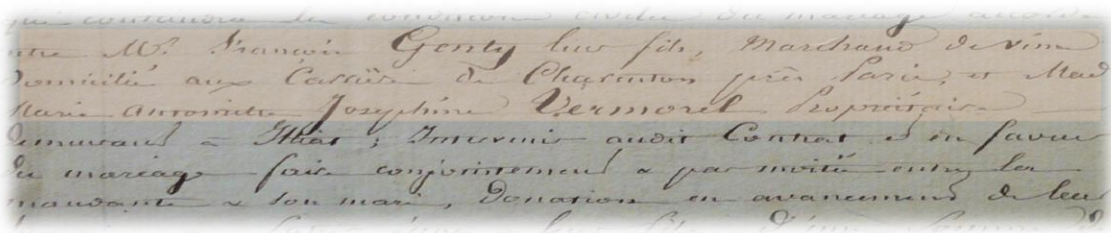 qui contiendra les conditions civiles du mariage
entre Mr. François Genty leur fils, Marchand de vins
Domicilié aux Carrières de Charenton près Paris, et Mad
Marie Antoinette Josephine Vermorel Propriétaire
demeurant à ; Intervenir audit Contrat et en faveur
du mariage faire conjointement & par moitié entre la
mandante & son mari, Donation en avancement de leur